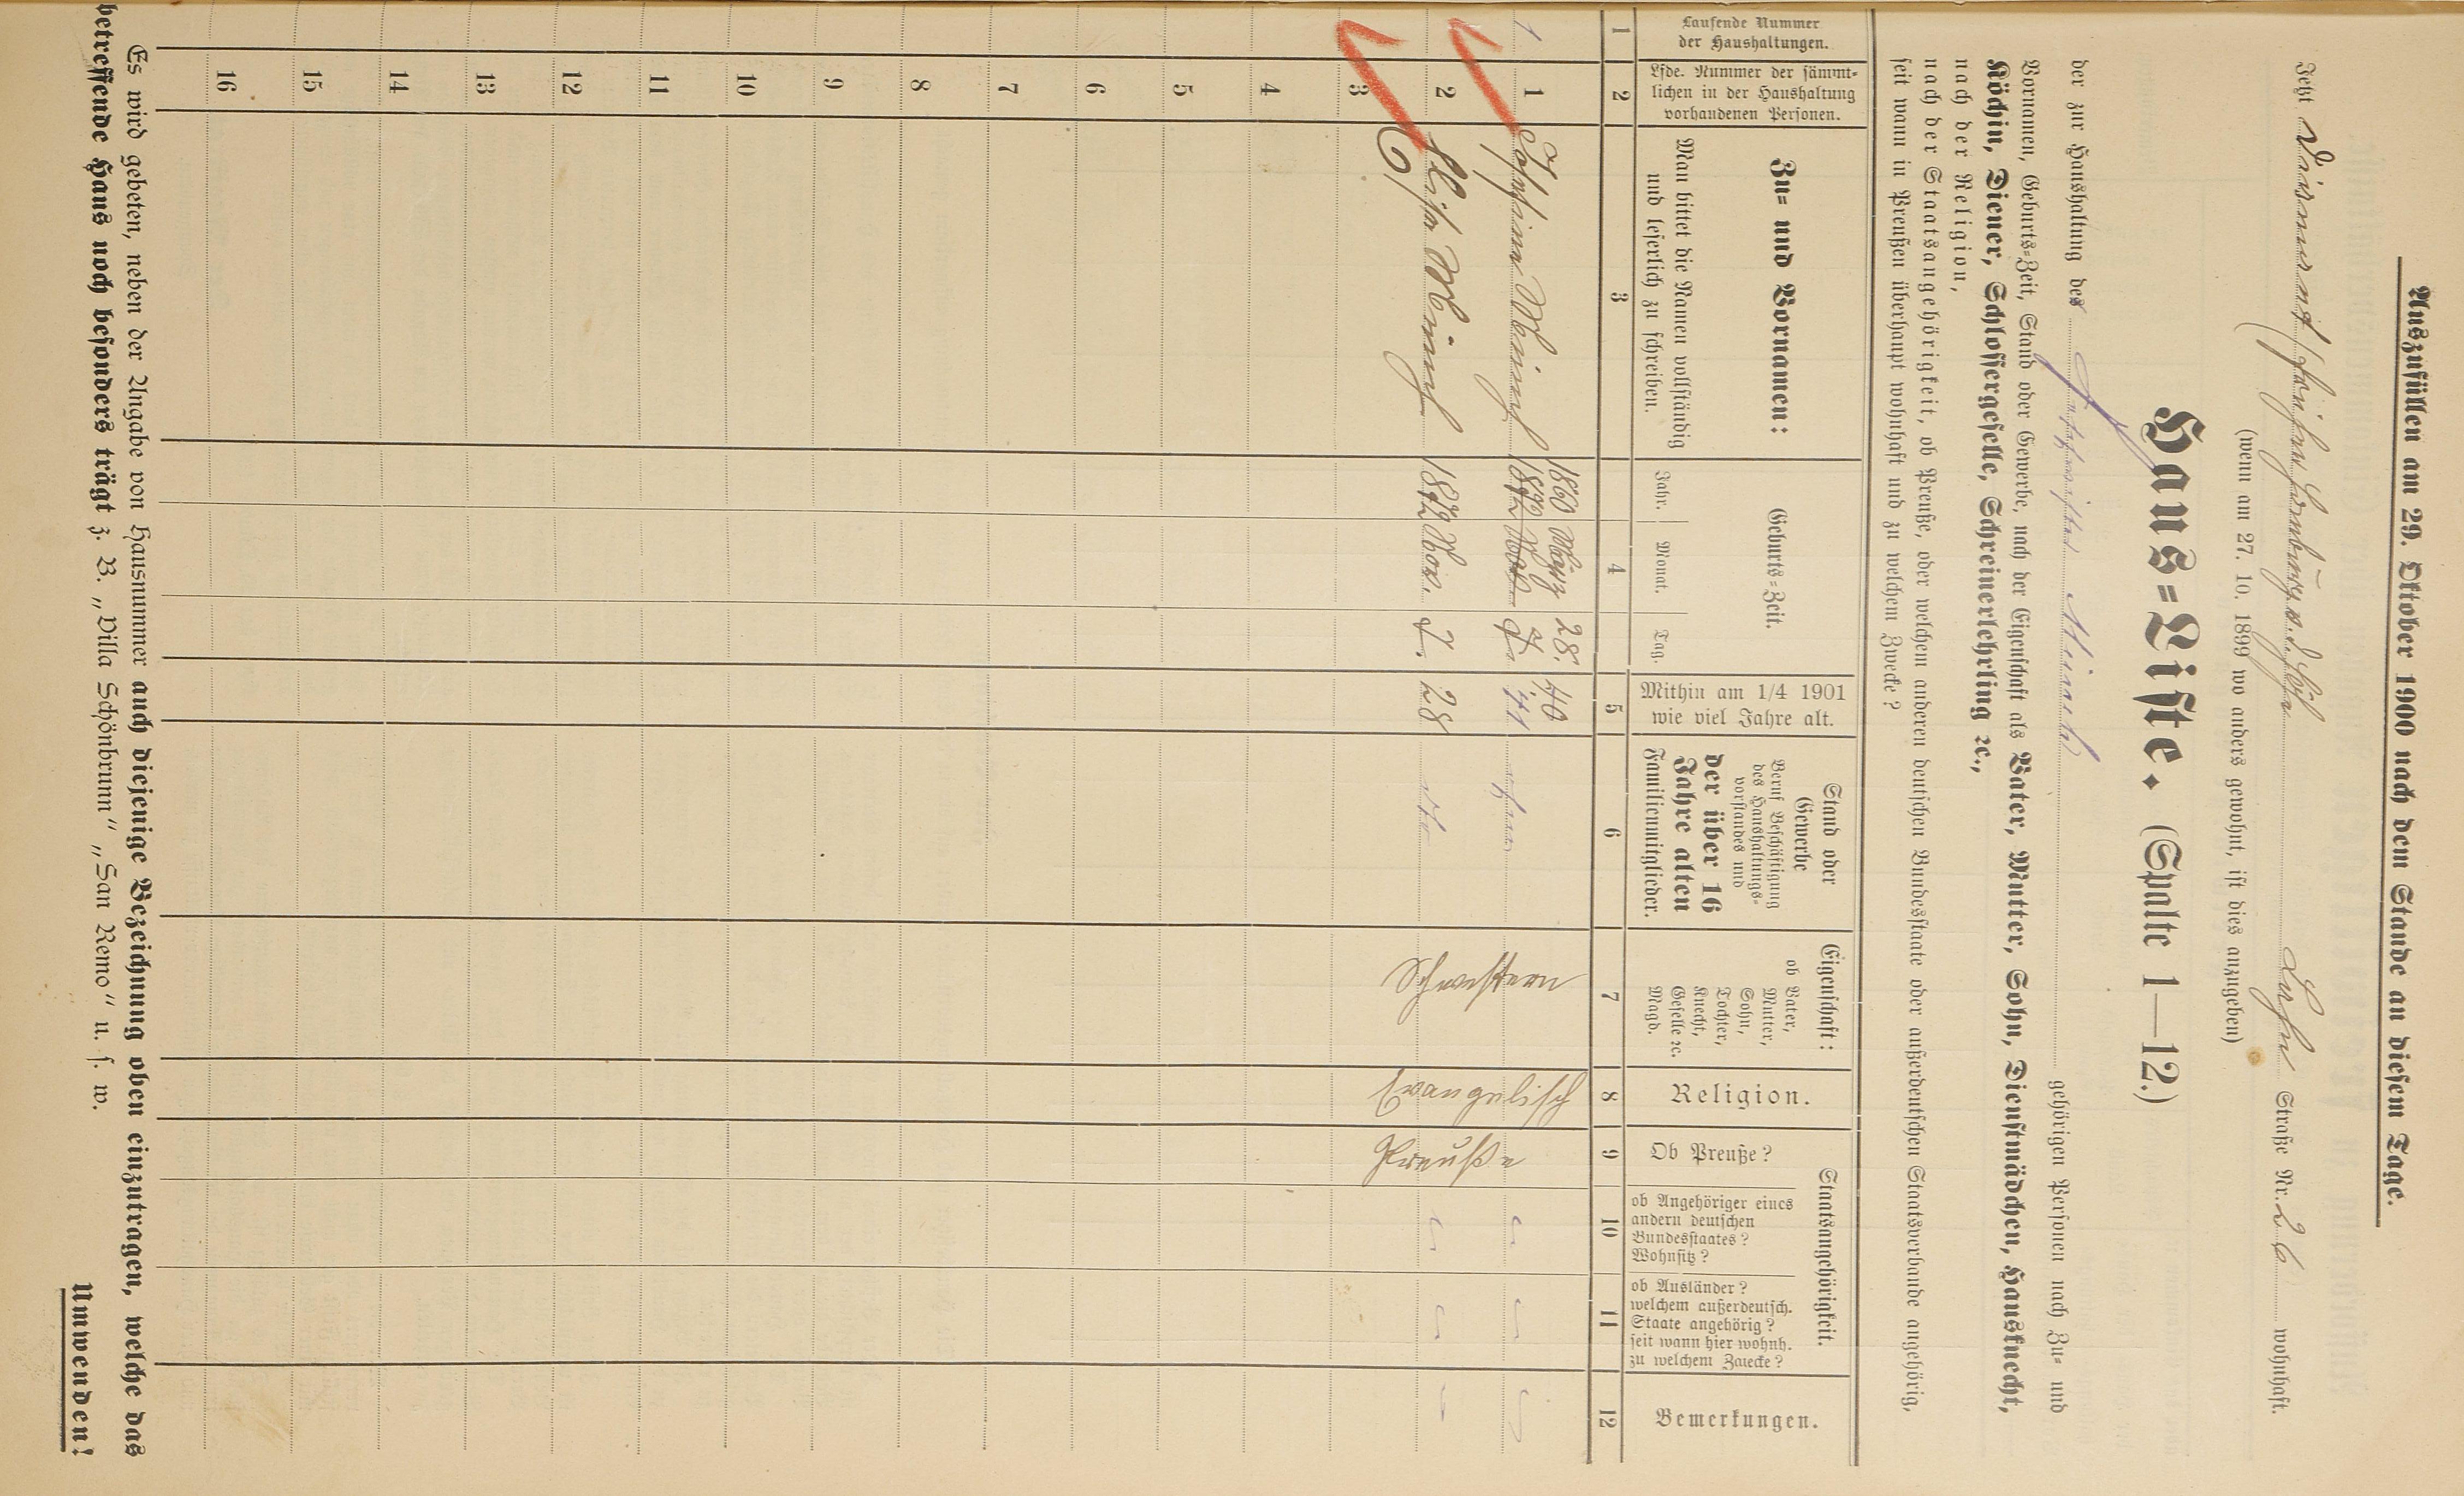 Auszufüllen am 29. Oktober 1900 nach dem Stande an diesem Tage.
Jetzt Straße Nr. 26 wohnhaft.
(wenn am 27. 10. 1899 wo anders gewohnt, ist dies anzugeben)
Haus=Liste. (Spalte 1—12.)
der zur Haushaltung des gehörigen Personen nach Zu= und
Vornamen, Geburts=Zeit, Stand oder Gewerbe, nach der Eigenschaft als Vater, Mutter, Sohn, Dienstmädchen, Hausknecht,
Köchin, Diener, Schlossergeselle, Schreinerlehrling ꝛc.,
nach der Religion,
nach der Staatsangehörigkeit, ob Preuße, oder welchem anderen deutschen Bundesstaate oder außerdeutschen Staatsverbande angehörig,
seit wann in Preußen überhaupt wohnhaft und zu welchem Zwecke?
Laufende Nummer
der Haushaltungen.
Lfde. Nummer der sämmt-
lichen in der Haushaltung
vorhandenen Personen.
Zu= und Vornamen:
Man bittet die Namen vollständig
und leserlich zu schreiben.
Geburts=Zeit.
Jahr. Monat. Tag.
Mithin am 1/4 1901
wie viel Jahre alt.
Stand oder
Gewerbe
Beruf Beschäftigung
des Haushaltungs-
vorstandes und
der über 16
Jahre alten
Familienmitglieder.
Eigenschaft:
ob Vater,
Mutter,
Sohn,
Tochter,
Knecht,
Geselle ꝛc.
Magd.
Religion.
Staatsangehörigkeit.
Ob Preuße?
ob Angehöriger eines
andern deutschen
Bundesstaates?
Wohnsitz?
ob Ausländer?
welchem außerdeutsch.
Staate angehörig?
seit wann hier wohnh.
zu welchem Zwecke?
Bemerkungen.
1 2 3 4 5 6 7 8 9 10 11 12
1860 März 28. 40
1 1 41
2 1872 Nov. 7. 28
Schwestern Evangelisch Preuße
3
4
5
6
7
8
9
10
11
12
13
14
15
16
Es wird gebeten, neben der Angabe von Hausnummer auch diejenige Bezeichnung oben einzutragen, welche das
betreffende Haus noch besonders trägt z. B. „Villa Schönbrunn" „San Remo" u. s. w.
Umwenden!